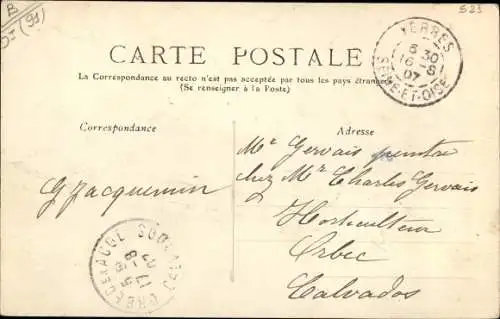 B
(91)
523
YERRES
8 30
16 -8
07
SEINE-ET-OISE
CARTE POSTALE
La Correspondance au recto n'est pas acceptée par tous les pays étrangers
(Se renseigner à la Poste)
Correspondance
Adresse
Mr Gervais peintre
chez Mr Charles Gervais
Horticulteur
Orbec
Calvados
G Jacquemin
ORBEC EN AUGE CALVADOS
17 -8
07